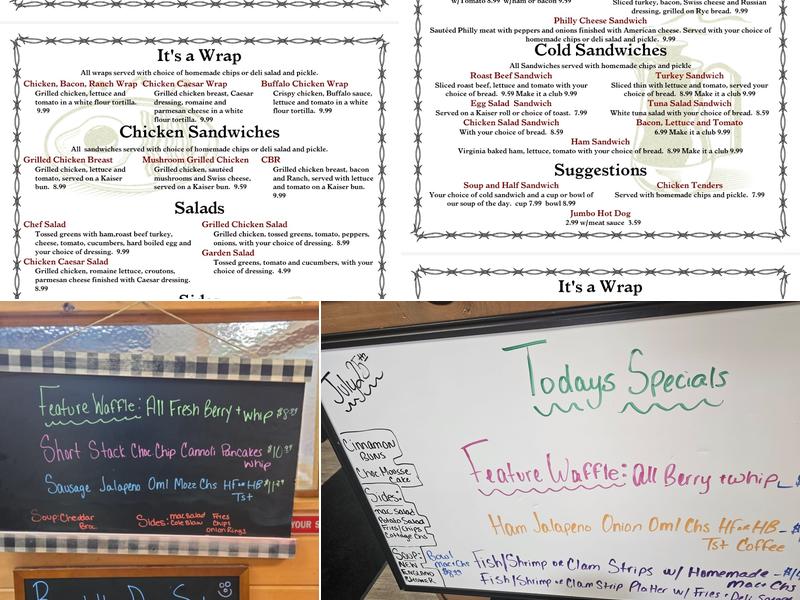 It's a Wrap
All wraps served with choice of homemade chips or deli salad and pickle.
Chicken, Bacon, Ranch Wrap
Grilled chicken, lettuce and
tomato in a white flour tortilla.
9.99
Chicken Caesar Wrap
Grilled chicken breast, Caesar
dressing, romaine and
parmesan cheese in a white
flour tortilla. 9.99
Buffalo Chicken Wrap
Crispy chicken, Buffalo sauce,
lettuce and tomato in a white
flour tortilla. 9.99
Chicken Sandwiches
All sandwiches served with choice of homemade chips or deli salad and pickle.
Grilled Chicken Breast
Grilled chicken, lettuce and
tomato, served on a Kaiser
bun. 8.99
Mushroom Grilled Chicken
Grilled chicken, sautéed
mushrooms and Swiss cheese,
served on a Kaiser bun. 9.59
CBR
Grilled chicken breast, bacon
and Ranch, served with lettuce
and tomato on a Kaiser bun.
9.99
Salads
Chef Salad
Tossed greens with ham,roast beef turkey,
cheese, tomato, cucumbers, hard boiled egg and
your choice of dressing. 9.99
Chicken Caesar Salad
Grilled chicken, romaine lettuce, croutons,
parmesan cheese finished with Caesar dressing.
8.99
Grilled Chicken Salad
Grilled chicken, tossed greens, tomato, peppers,
onions, with your choice of dressing. 8.99
Garden Salad
Tossed greens, tomato and cucumbers, with your
choice of dressing. 4.99
Sides
w/Tomato 8.99 w/ham or bacon 9.59
Sliced turkey, bacon, Swiss cheese and Russian
dressing, grilled on Rye bread. 9.99
Philly Cheese Sandwich
Sautéed Philly meat with peppers and onions finished with American cheese. Served with your choice of
homemade chips or deli salad and pickle. 9.99
Cold Sandwiches
All Sandwiches served with homemade chips and pickle
Roast Beef Sandwich
Sliced roast beef, lettuce and tomato with your
choice of bread. 9.59 Make it a club 9.99
Turkey Sandwich
Sliced thin with lettuce and tomato, served your
choice of bread. 8.99 Make it a club 9.99
Egg Salad Sandwich
Served on a Kaiser roll or choice of toast. 7.99
Tuna Salad Sandwich
White tuna salad with your choice of bread. 8.59
Chicken Salad Sandwich
With your choice of bread. 8.59
Bacon, Lettuce and Tomato
6.99 Make it a club 9.99
Ham Sandwich
Virginia baked ham, lettuce, tomato with your choice of bread. 8.99 Make it a club 9.99
Suggestions
Soup and Half Sandwich
Your choice of cold sandwich and a cup or bowl of
our soup of the day. cup 7.99 bowl 8.99
Chicken Tenders
Served with homemade chips and pickle. 7.99
Jumbo Hot Dog
2.99 w/meat sauce 3.59
It's a Wrap
Feature Waffle: All Fresh Berry + whip $8.99
Short Stack Choc Chip Cannoli Pancakes $10.99
whip
Sausage Jalapeno Oml Mozz Chs HF or HB $11.99
Tst
Soup: Cheddar
Broc
Sides: mac Salad
Cole Slaw
Fries
Chips
onion Rings
YOUR S
July 25th
Todays Specials
Cinnamon
Buns
Choc Mousse
Cake
Sides:
mac Salad
Potato Salad
Fries/Chips
Cottage Chs
Soup:
New
England
Chowder
Bowl
Mac+Chs
$8.99
Feature Waffle: All Berry + whip $
Ham Jalapeno Onion Oml Chs HF or HB
Tst Coffee
Fish/Shrimp or Clam Strips w/ Homemade
mac+Chs
Fish/Shrimp or Clam Strip Platter w/ Fries + Deli